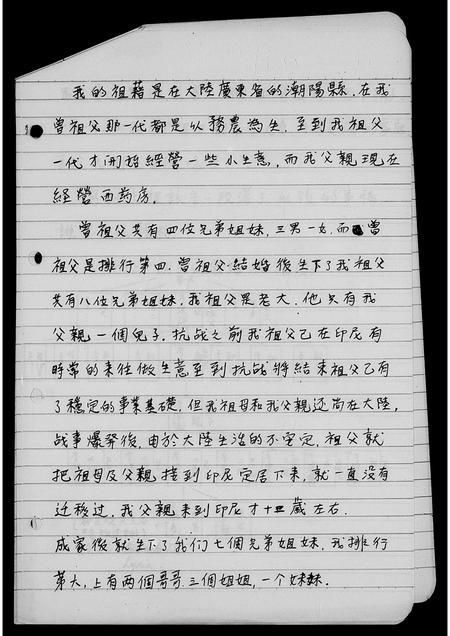 我的祖藉是在大陸廣東省的潮陽縣，在我
曾祖父那一代都是以務農為生，至到我祖父
一代才開始經營一些小生意，而我父親現在
經營西药房。
曾祖父共有四位兄弟姐妹，三男一女，而曾
祖父是排行第四。曾祖父結婚後生下了我祖父
共有八位兄弟姐妹，我祖父是老大，他只有我
父親一個兒子。抗战之前我祖父已在印尼有
時常的来往做生意至到抗战將結束祖父已有
了穩定的事業基礎，但我祖母和我父親还尚在大陸，
战事爆發後，由於大陸生活的不安定，祖父就
把祖母及父親接到印尼定居下来，就一直没有
迁移过，我父親来到印尼才十五歲左右．
成家後就生下了我们七個兄弟姐妹，我排行
第六，上有两個哥哥三個姐姐，一個妹妹．